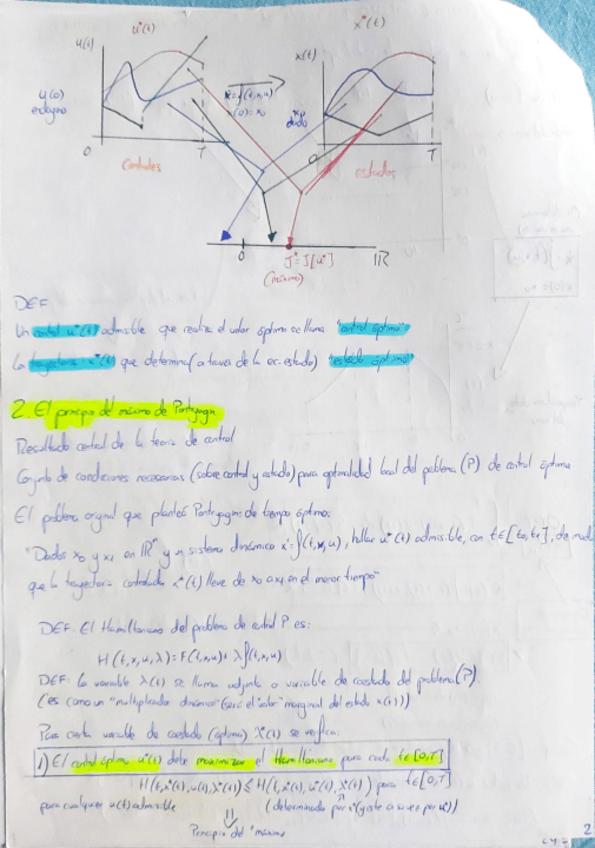 u*(t)
x*(t)
u(t)
x(t)
u(0)
ẋ=f(t,x,u)
x(0)=x₀
x₀
dado
0
T
0
T
Controles
estados
0
J*=J[u*]
IR
(máximo)
DEF
Un control u*(t) admisible que realiza el valor óptimo se llama "control óptimo"
La trayectoria x*(t) que determina (a través de la ec. estado) "estado óptimo"
2. El principio del máximo de Pontryagin
Resultado central de la teoría de control
Conjunto de condiciones necesarias (sobre control y estado) para optimalidad local del problema (P) de control óptimo
El problema original que planteó Pontryagin: de tiempo óptimo:
"Dados x₀ y x₁ en IRⁿ y un sistema dinámico x'=f(t,x,u), hallar u*(t) admisible, con t∈[t₀,t₁], de modo
que la trayectoria controlada x*(t) lleve de x₀ a x₁ en el menor tiempo"
DEF: El Hamiltoniano del problema de control P es:
H(t,x,u,λ)=F(t,x,u)+λf(t,x,u)
DEF: La variable λ(t) se llama adjunta o variable de coestado del problema (P).
(es como un "multiplicador dinámico" será el "valor" marginal del estado x(t))
Para cierta variable de coestado (óptimo) λ*(t) se verifica:
1) El control óptimo u*(t) debe maximizar el Hamiltoniano para cada t∈[0,T]
H(t,x*(t),u(t),λ*(t)) ≤ H(t,x*(t),u*(t),λ*(t)) para t∈[0,T]
para cualquier u(t) admisible
(determinado por x* (y este a su vez por u*))
Principio del "máximo"
2